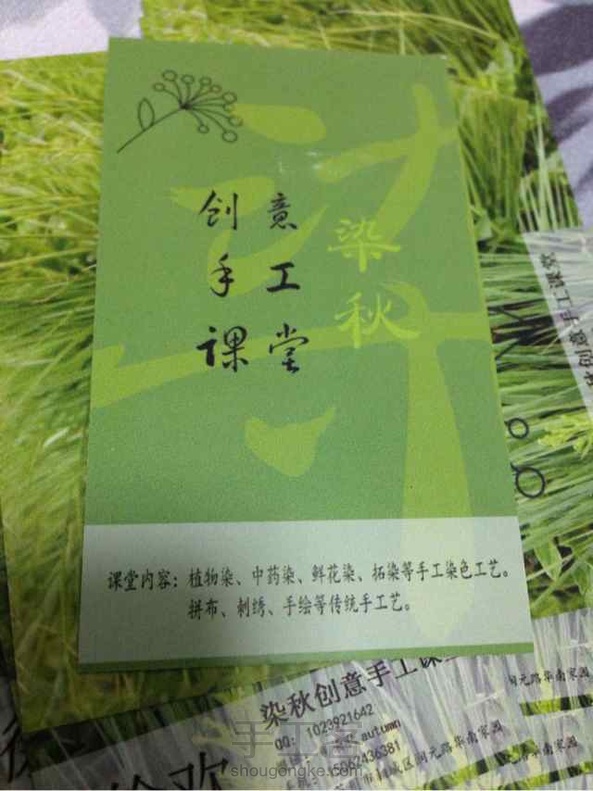 创意
手工
课堂
染秋
课堂内容：植物染、中药染、鲜花染、拓染等手工染色工艺。
拼布、刺绣、手绘等传统手工艺。
创意手工课堂
染秋创意手工课
QQ: 1023921642
autumn
5062436381
城区润元路华南家园
润元路华南家园
手工客
shougongke.com